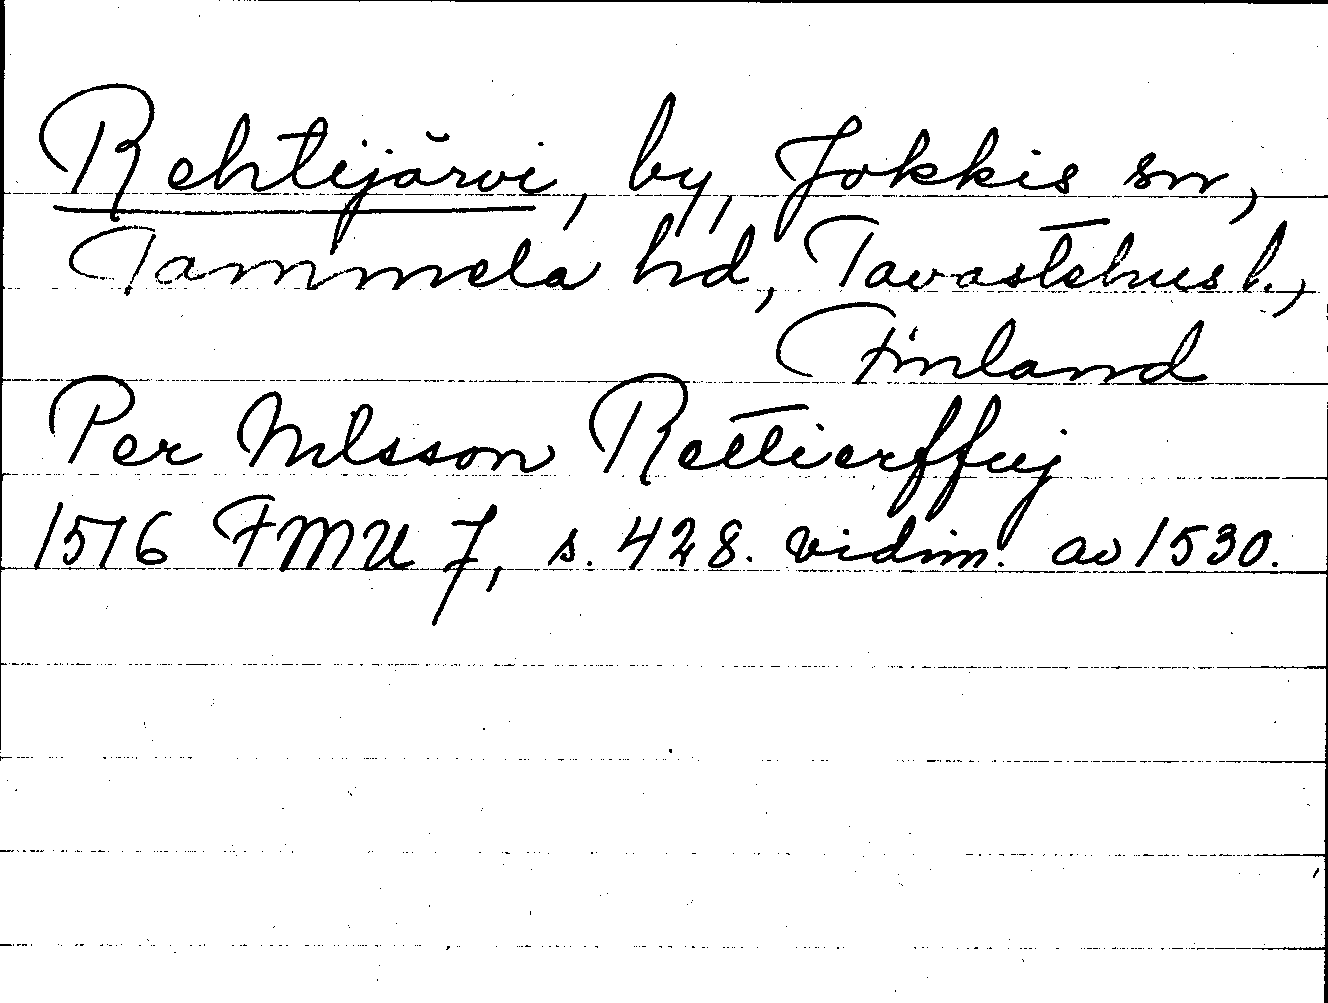 Rehtijärvi, by, Jokkis sn,
Tammela hd, Tavastehus l.,
Finland
Per Nilsson Rettierffuj
1516 FMU 7, s. 428. vidim. av 1530.